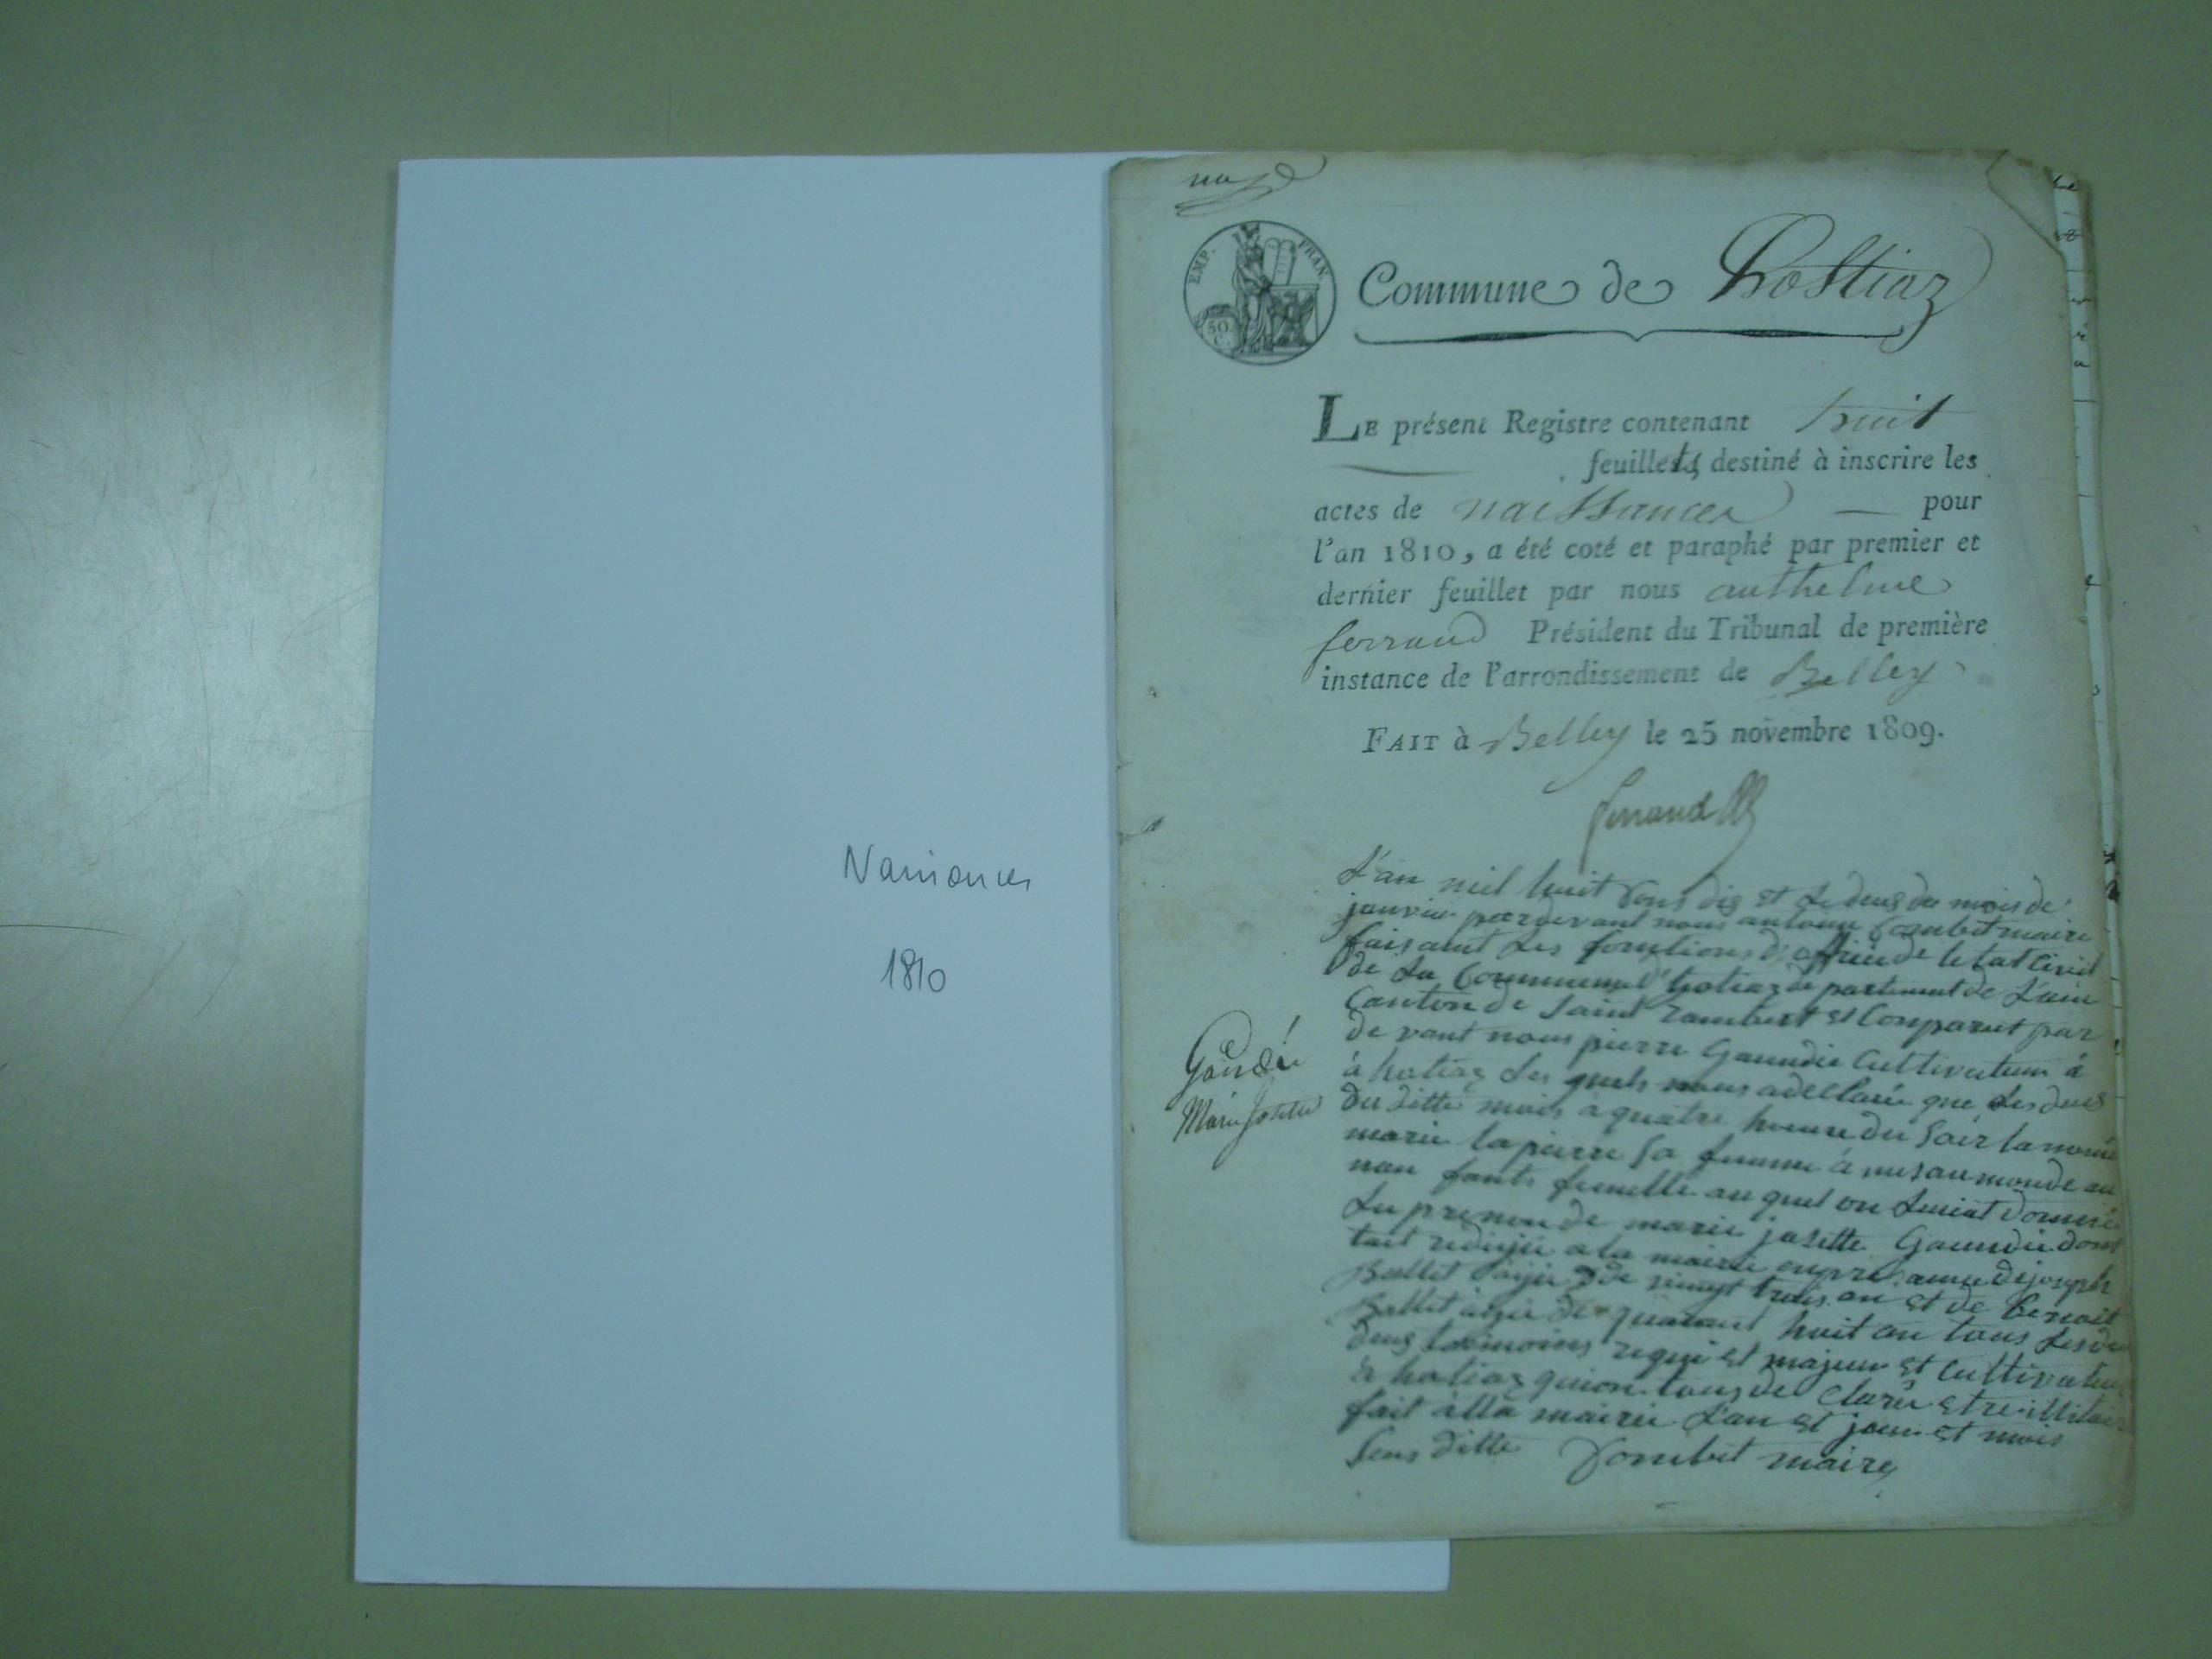 Naissances
1810
EMP. FRAN.
50. C.
Commune de hostiaz
LE présent Registre contenant huit
feuillets, destiné à inscrire les
actes de naissances pour
l'an 1810, a été coté et paraphé par premier et
dernier feuillet par nous anthelme
ferrand Président du Tribunal de première
instance de l'arrondissement de Belley
FAIT à Belley le 25 novembre 1809.
ferrand
L'an mil huit Cens dix et le deus du mois de
janvier pardevant nous antoine Combet maire
faisant les fonctions d'officier de letat Civil
de la Commune d'hotiaz departement de L'ain
Canton de Saint rambert et Comparut par
devant nous pierre Gaundie Cultivateur à
à hotiaz les quels nous a decllarée que les deus
du ditte mois a quatre heure du Soir la nomée
marie lapierre Sa femme à mis au monde au
nan fants femelle au quel on donné
Le prenon de marie josette Gaundie dont
tact redijié a la mairie en presance de joseph
Ballet agié de vingt trois an et de benoit
Ballet agié de quarant huit an tous les deus
deus temoins requi et majeur et Cultivateur
à hotiaz qui on tous de Claré etre illitaire
fait alla mairie L'an et jour et mois
Sus ditte Combet maire
Gaudie
Marie Josette